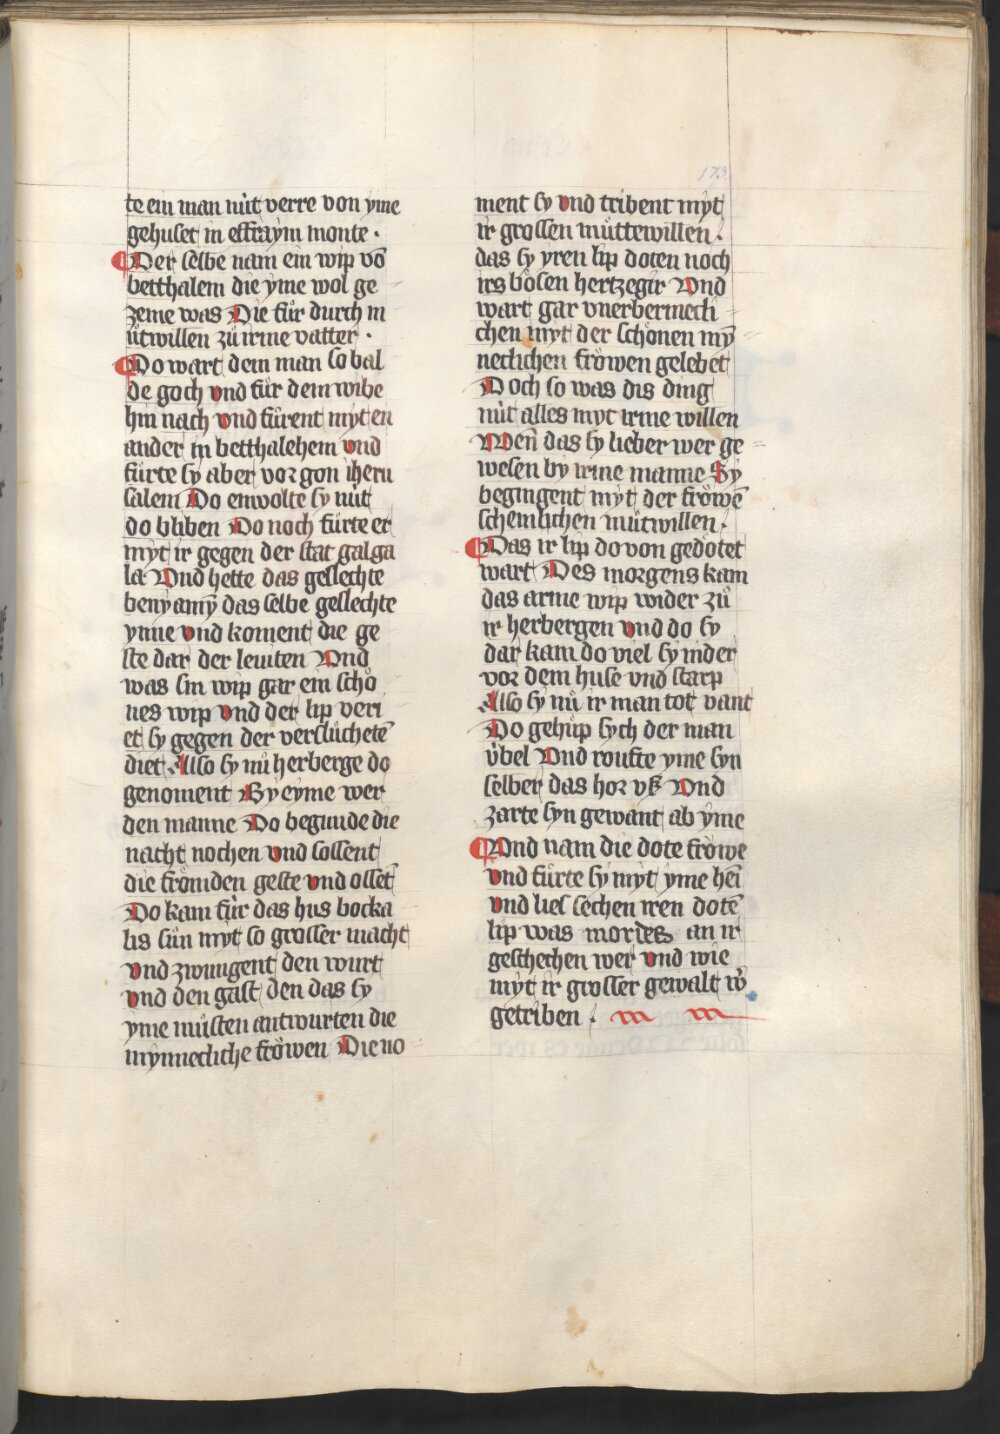 173
te ein man nüt verre von yme
gehuset in effraÿm monte ·
Der selbe nam ein wip vō
betthalem die yme wol ge
zeme was Die fůr durch m
ůtwillen zů irme vatter ·
Do wart dem man so bal
de goch vnd fůr dem wibe
hin nach vnd fůrent myt en
ander in betthalehem vnd
fůrte sy aber vor gon iheru
salem Do enwolte sy nüt
do bliben Do noch fůrte er
myt ir gegen der stat galga
la Vnd hette das geslechte
benyamÿ das selbe geslechte
ynne vnd koment die ge
ste dar der leuiten Vnd
was sin wip gar ein schö
nes wip vnd der lip veri
et sy gegen der verflůchetē
diet Also sy nů herberge do
genoment By eyme wer
den manne Do begunde die
nacht nochen vnd sossent
die frömden geste vnd ossēt
Do kam für das hus bocka
lis sün myt so grosser macht
vnd zwungent den wurt
vnd den gast den das sy
yme můsten antwurten die
mynnecliche fröwen Die no
ment sy vnd tribent myt
ir grossen můttewillen ·
das sy yren lip doten noch
irs bösen hertzegir Vnd
wart gar vnerbermecli
chen myt der schönen mÿ
neclichen fröwen gelebet
Doch so was dis ding
nüt alles myt irme willen
Wen̄ das sy lieber wer ge
wesen by irme manne Sy
begingent myt der fröwē
schemlichen můtwillen ·
Das ir lip do von gedötet
wart Des morgens kam
das arme wip wider zů
ir herbergen vnd do sy
dar kam do viel sy nider
vor dem huse vnd starp
Also sy nů ir man tot vant
Do gehůp sych der man
übel Vnd roufte yme syn
selber das hor vß Vnd
zarte syn gewant ab yme
Vnd nam die dote fröwe
vnd fůrte sy myt yme hei
vnd lies sechen iren dotē
lip was mordes an ir
geschechen wer vnd wie
myt ir grosser gewalt ẘ
getriben ·